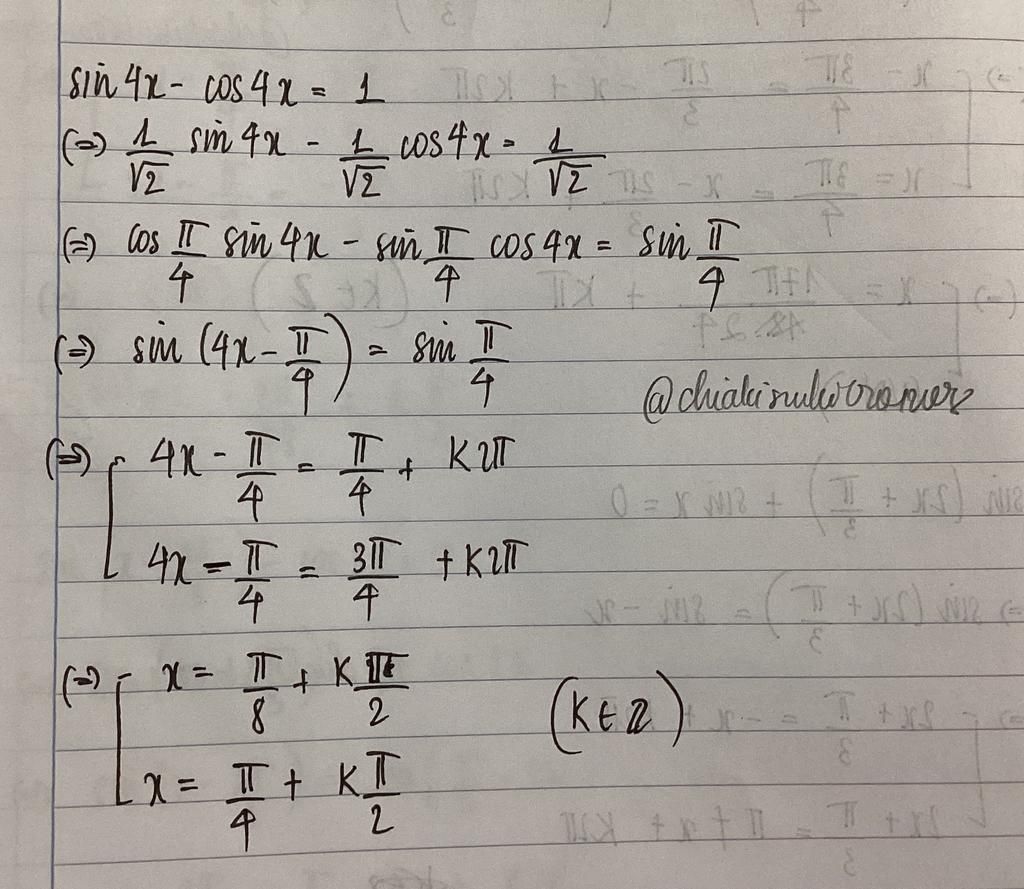 sin 4x - cos 4x = 1
(=) 1/√2 sin 4x - 1/√2 cos 4x = 1/√2
(=) cos π/4 sin 4x - sin π/4 cos 4x = sin π/4
(=) sin (4x - π/4) = sin π/4
(=) [ 4x - π/4 = π/4 + K2π
4x - π/4 = 3π/4 + K2π
(=) [ x = π/8 + K π/2
(K ∈ Z)
x = π/4 + K π/2